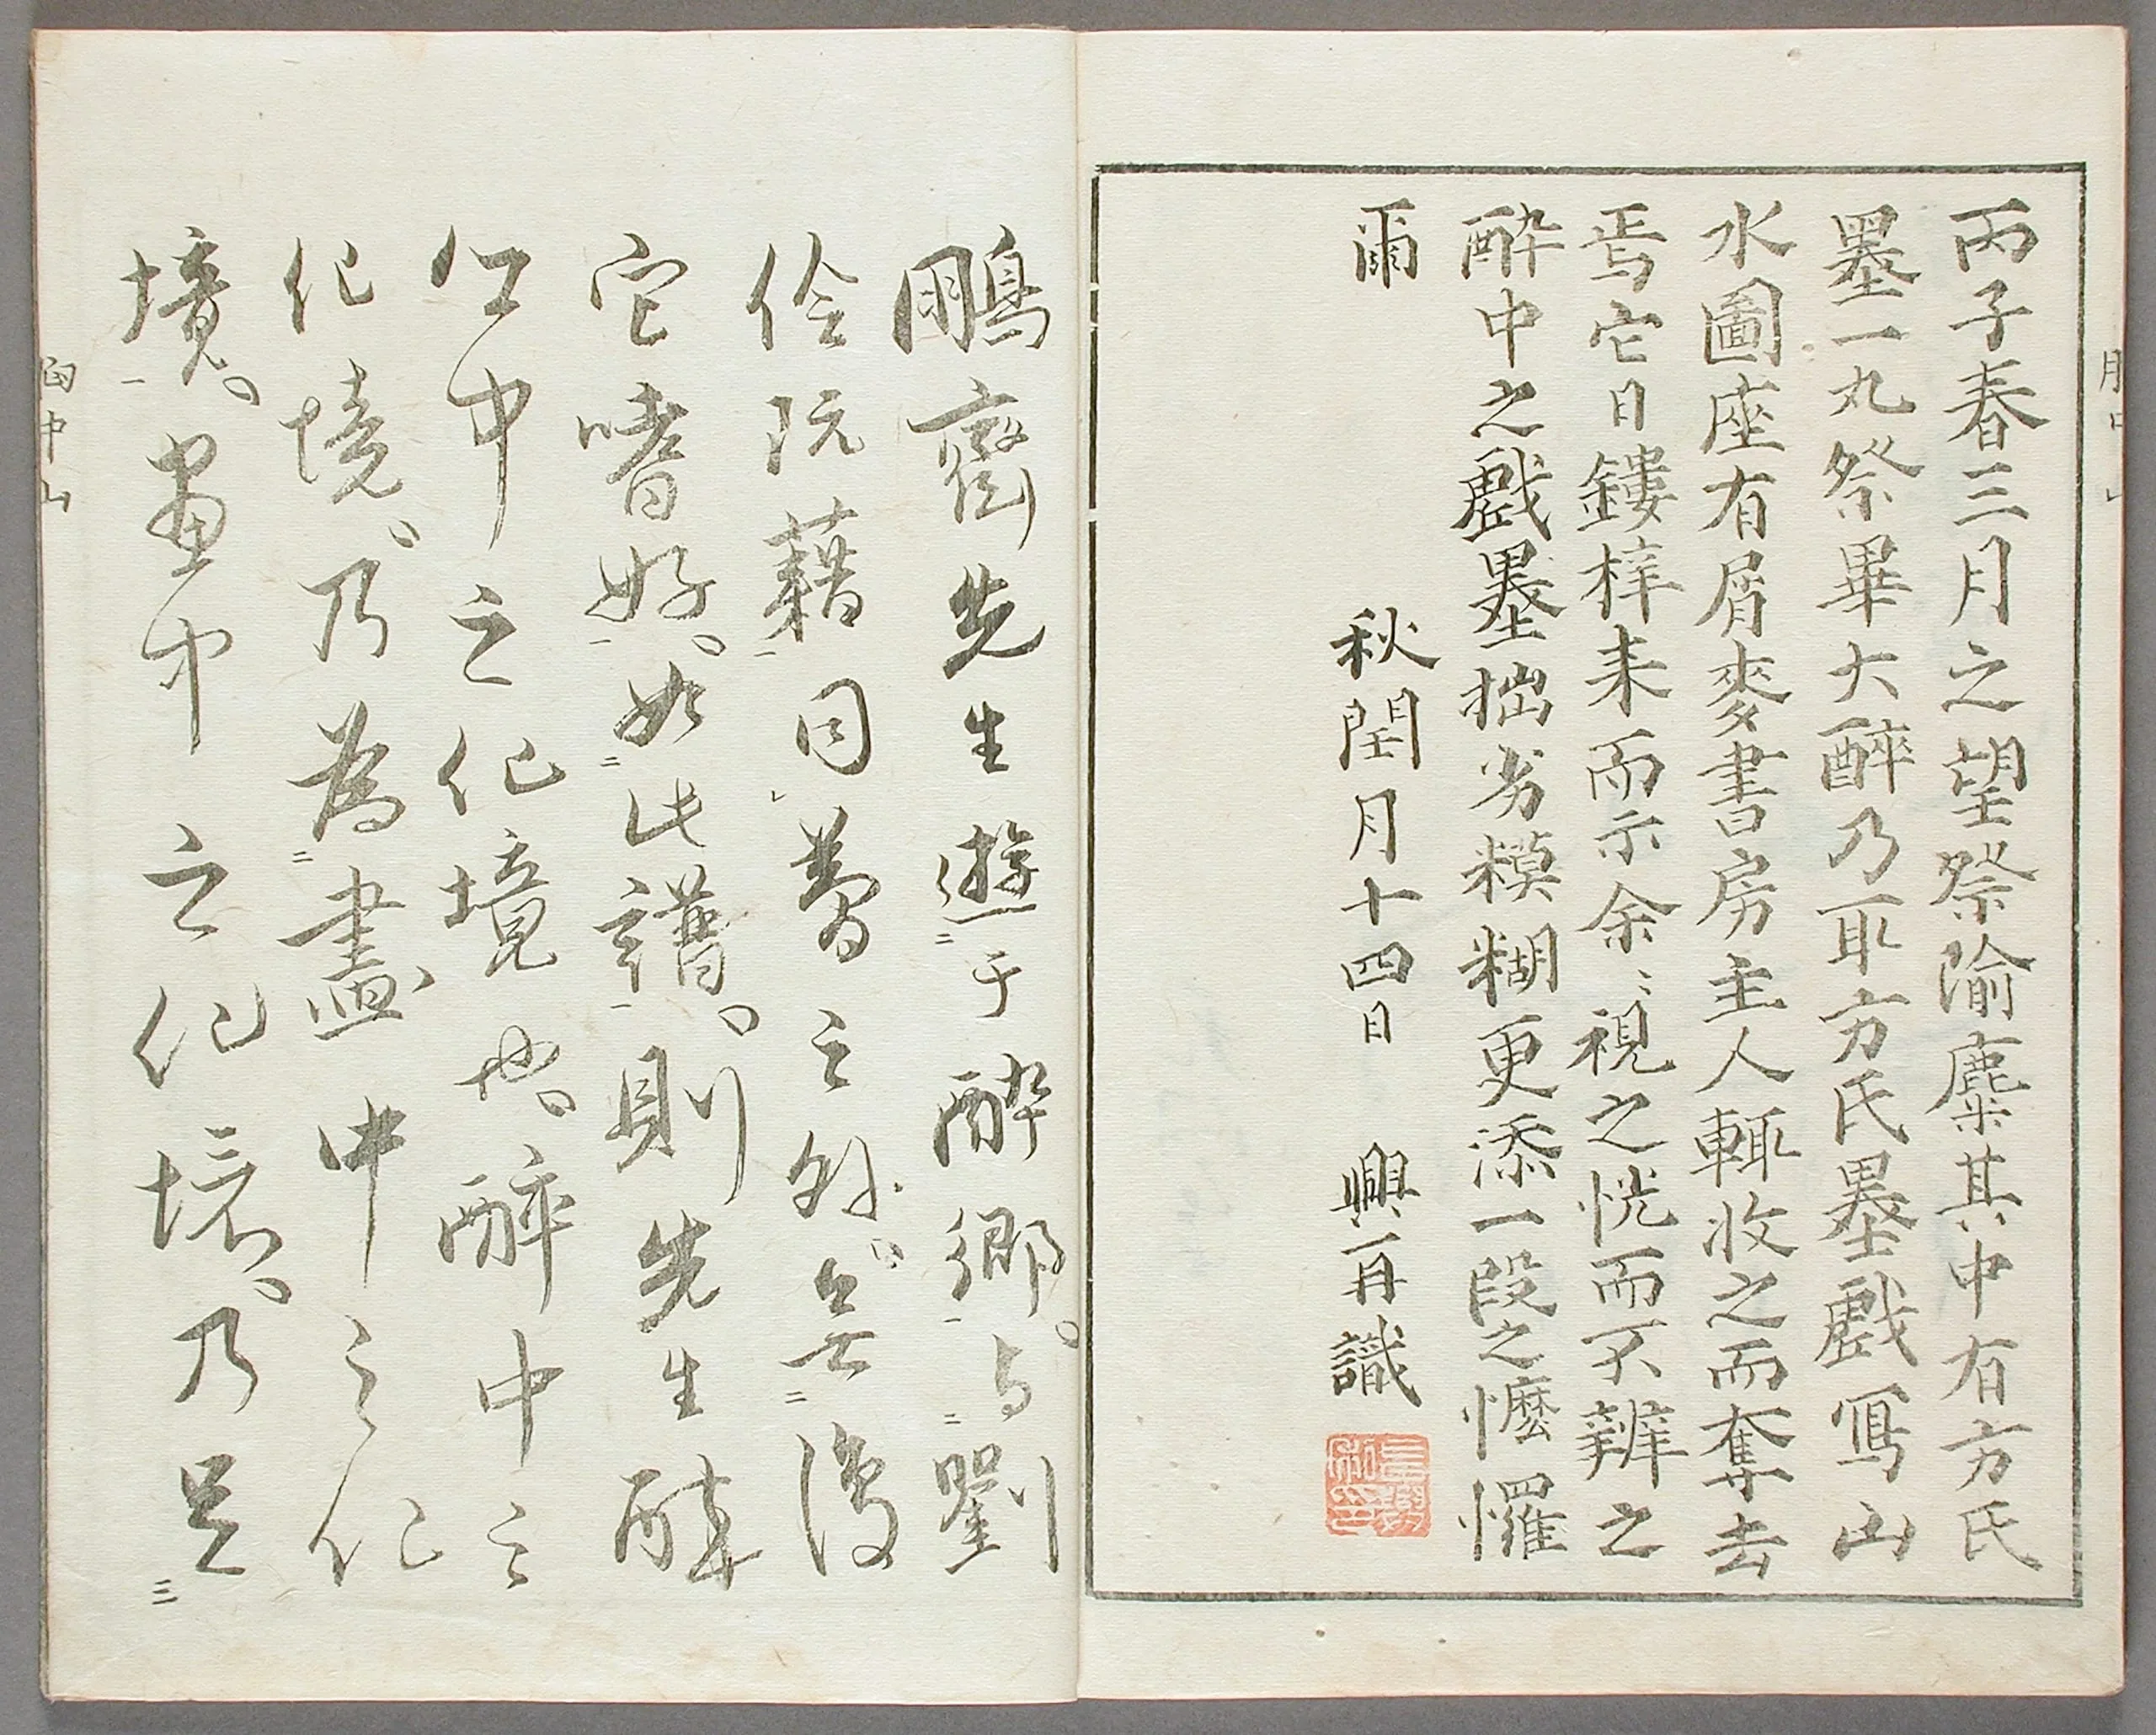 丙子春三月之望祭隃麋其中有方氏
墨一丸祭畢大醉乃取方氏墨戲寫山
水圖座有屑麥書房主人輙收之而奪去
焉它日鏤梓来而示余〻視之恍而不辨之
酔中之戲墨拙劣糢糊更添一段之㦬㦬
爾
秋閏月十四日　興再識
鵬齋先生遊于酔郷与劉
伶阮藉同蕩之外無復
它嗜好如此譜則先生酔
中之化境也醉中之
化境乃為畫中之化
境畫中之化境乃是
胸中山